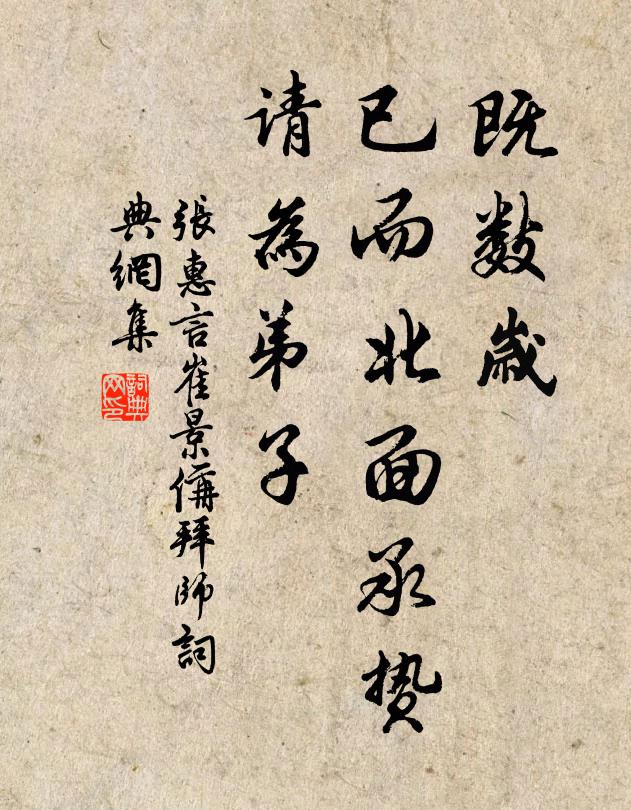 既数歲
已而北面承贽
请為弟子
張惠言崔景偁拜師詞
典網集
詞典
网印